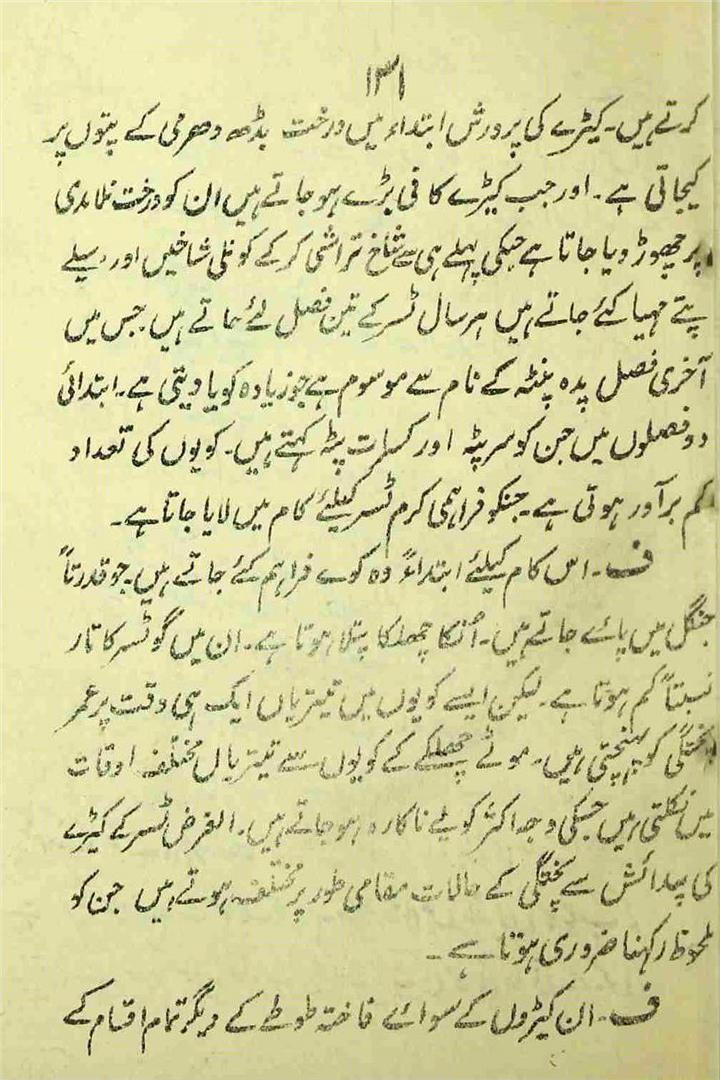 ۱۳۱
کرتے ہیں۔ کیڑے کی پرورش ابتداء میں درخت بڈھہ دھرمی کے پتوں پر
کیجاتی ہے۔ اور جب کیڑے کافی بڑے ہو جاتے ہیں ان کو درخت نلامدی
پر چھوڑ دیا جاتا ہے جسکی پہلے ہی سے شاخ تراشی کر کے کونلی شاخیں اور رسیلے
پتے مہیا کئے جاتے ہیں ہر سال ٹسر کے تین فصل لئے جاتے ہیں جس میں
آخری فصل پدہ پنٹہ کے نام سے موسوم ہے جو زیادہ کویا دیتی ہے۔ ابتدائی
دو فصلوں میں جن کو سرپٹہ اور کسرات پٹہ کہتے ہیں۔ کویوں کی تعداد
کم برآور ہوتی ہے۔ جنکو فراہمی کرم ٹسر کیلئے کام میں لایا جاتا ہے۔
ف۔ اس کام کیلئے ابتداءً وہ کوے فراہم کئے جاتے ہیں۔ جو قدرتاً
جنگل میں پائے جاتے ہیں۔ اُنکا چھلکا پتلا ہوتا ہے۔ ان میں گو ٹسر کا تار
نسبتاً کم ہوتا ہے۔ لیکن ایسے کویوں میں تیتریاں ایک ہی وقت پر عمر
پختگی کو پہنچتی ہیں۔ موٹے چھلکے کے کویوں سے تیتریاں مختلف اوقات
میں نکلتی ہیں جسکی وجہ اکثر کویے ناکارہ ہو جاتے ہیں۔ الغرض ٹسر کے کیڑے
کی پیدائش سے پختگی کے حالات مقامی طور پر مختلف ہوتے ہیں جن کو
ملحوظ رکھنا ضروری ہوتا ہے۔
ف۔ ان کیڑوں کے سوائے فاختہ طوطے کے دیگر تمام اقسام کے